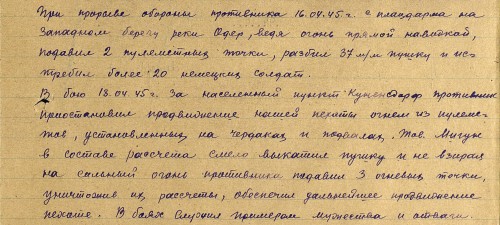 При прорыве обороны противника 16.04.45 г. с плацдарма на
западном берегу реки Одер, ведя огонь прямой наводкой,
подавил 2 пулеметных точки, разбил 37 м/м пушку и ис-
требил более 20 немецких солдат.
В бою 18.04.45 г. за населенный пункт Кунэрсдорф противник
приостановил продвижение нашей пехоты огнем из пулеме-
тов, установленных на чердаках и подвалах. Тов. Мигун
в составе рассчета смело выкатил пушку и не взирая
на сильный огонь противника подавил 3 огневых точки,
уничтожив их рассчеты, обеспечил дальнейшее продвижение
пехоте. В боях служил примером мужества и отваги.